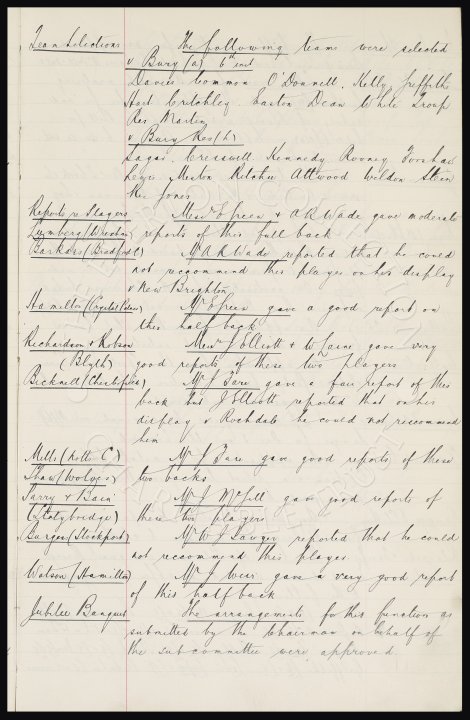 Team Selections The following teams were selected
v Bury (a) 6th inst
Davies. Common O'Donnell. Kelly, Griffiths
Hart Critchley. Easton Dean White Troup
Res Martin
v Bury Res (h)
Sagar. Cresswell Kennedy Rooney
Meston Ritchie Attwood Weldon Stein
Res Jones
Reports re Players Messrs E Green & A R Wade gave moderate
Lumberg (Wrexham) reports of this full back
Barkas (Bradford C) Mr A R Wade reported that he could
not recommend this player on his display
v New Brighton
Hamilton (Crystal Palace) Mr E Green gave a good report on
this half back
Richardson & Robson Messrs J Elliott & W gave very
(Blyth) good reports of these two players
Bicknell (Chesterfield) Mr J Fare gave a fair report of this
back but J Elliott reported that on his
display v Rochdale he could not reccommend
him
Mills (Notts C.) Mr J Fare gave good reports of these
Shaw (Wolves) two backs
Parry & Bain Mr J McGill gave good reports of
(Stalybridge) these two players
Burger (Stockport) Mr W J Sawyer reported that he could
not reccommend this player
Watson (Hamilton) Mr J Weir gave a very good report
of this half back
Jubilee Banquet The arrangements for this function as
submitted by the Chairman on behalf of
the sub committee were approved.